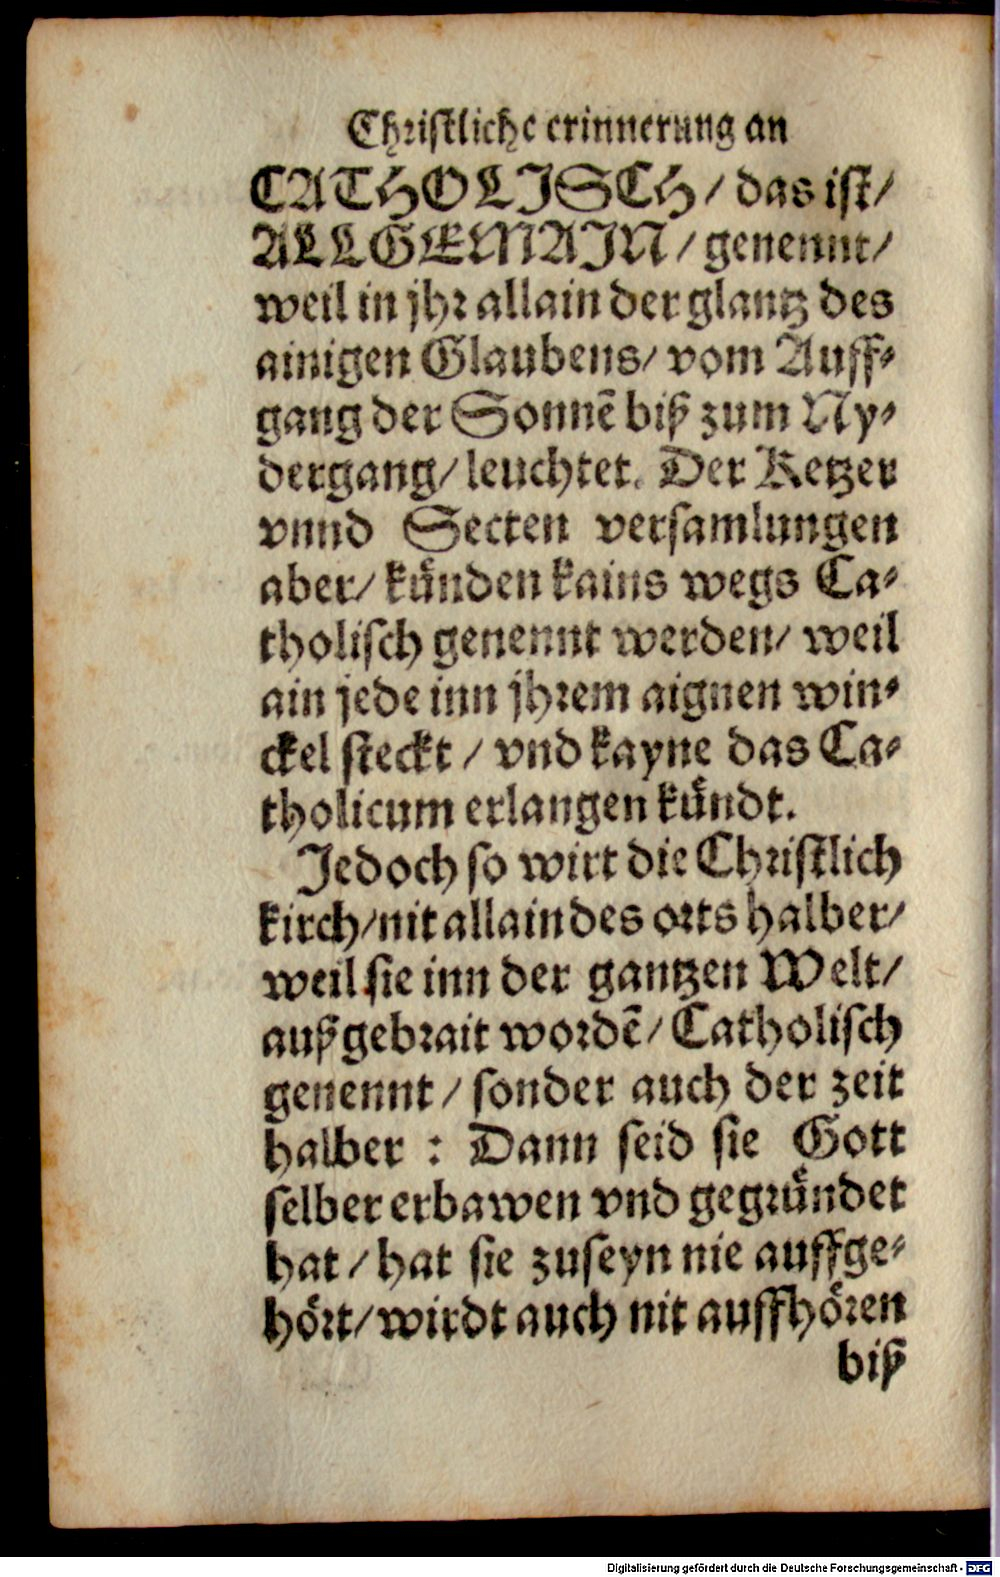 Christliche erinnerung an
CATHOLISCH / das ist /
ALLGEMAIN / genennt /
weil in jhr allain der glantz des
ainigen Glaubens / vom Auff⸗
gang der Sonnē biß zum Ny⸗
dergang / leuchtet. Der Ketzer
vnnd Secten versamlungen
aber / künden kains wegs Ca⸗
tholisch genennt werden / weil
ain jede inn jhrem aignen win⸗
ckel steckt / vnd kayne das Ca⸗
tholicum erlangen kündt.
Jedoch so wirt die Christlich
kirch / nit allain des orts halber /
weil sie inn der gantzen Welt /
außgebrait wordē / Catholisch
genennt / sonder auch der zeit
halber : Dann seid sie Gott
selber erbawen vnd gegründet
hat / hat sie zuseyn nie auffge⸗
hört / wirdt auch nit auffhören
biß
Digitalisierung gefördert durch die Deutsche Forschungsgemeinschaft - DFG